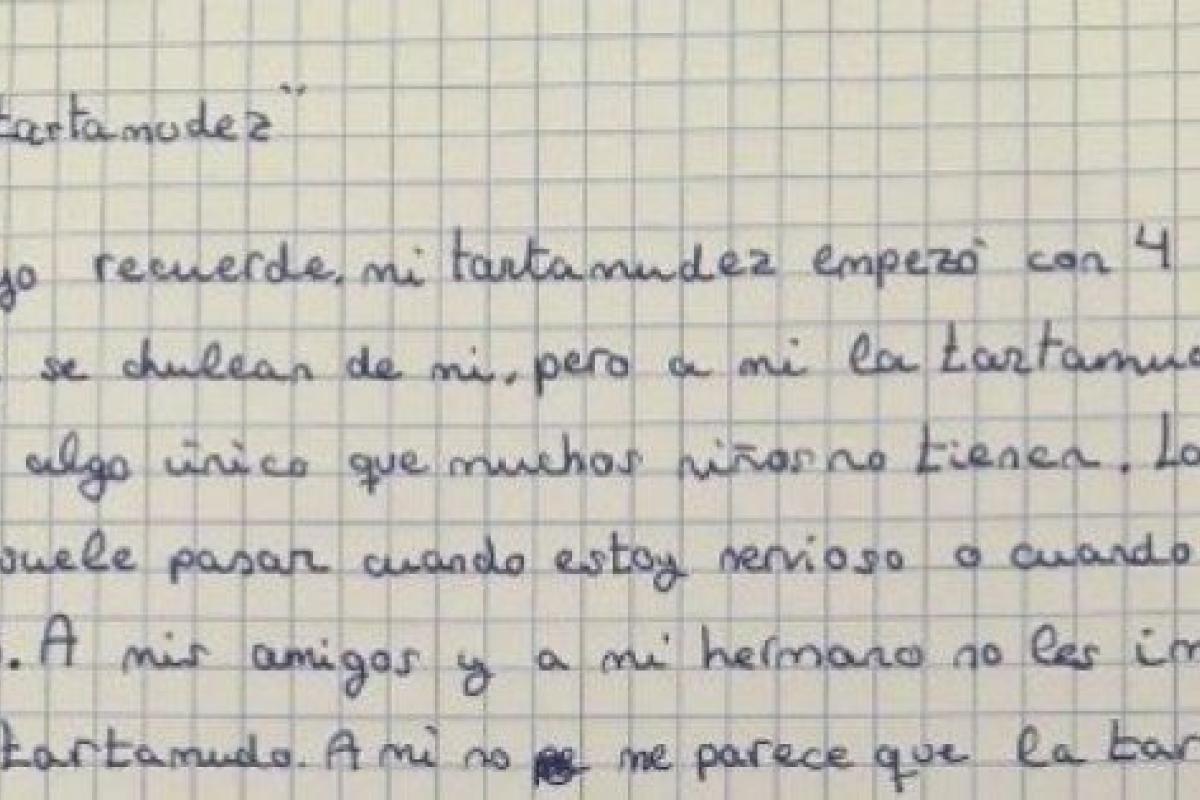 tartamudez"
yo recuerde, mi tartamudez empezó con 4
se chulean de mi, pero a mi la tartamud
algo único que muchos niños no tienen. Lo
suele pasar cuando estoy nervioso o cuando
. A mis amigos y a mi hermano no les im
tartamudo. A mi no me parece que la tar